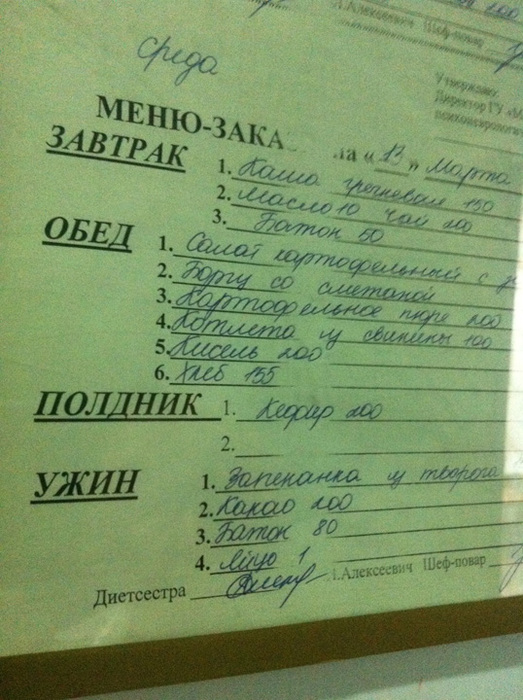 .Алексеевич Шеф-повар
Среда
Утверждаю:
Директор ГУ «М
МЕНЮ-ЗАКА на « 13 » Марта
ЗАВТРАК
1. Каша гречневая 150
2. Масло 10 чай 200
3. Батон 50
ОБЕД
1. Салат картофельный с
2. Борщ со сметаной
3. Картофельное пюре 200
4. Котлета из свинины 100
5. Кисель 200
6. Хлеб 155
ПОЛДНИК 1. Кефир 200
2.
УЖИН
1. Запеканка из творога
2. Какао 200
3. Батон 80
4. Яйцо 1
Диетсестра .Алексеевич Шеф-повар